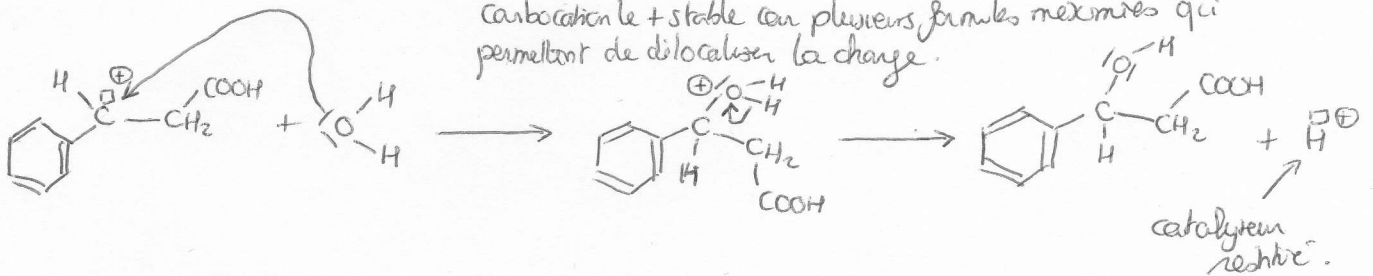 carbocation le + stable car plusieurs formules mésomères qui
permettent de délocaliser la charge.
H ⊕ COOH
C — CH2 + O H
H
⊕ O H
H
C CH2
H COOH
O H
COOH
C CH2
H
+ H ⊕
catalyseur
restitué.